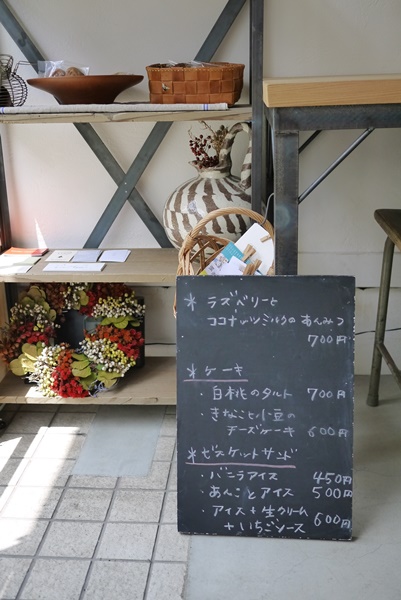 * ラズベリーと
ココナッツミルクの あんみつ
700円
* ケーキ
・白桃のタルト 700円
・きなこと小豆の
チーズケーキ 600円
* ビスケットサンド
・バニラアイス 450円
・あんことアイス 500円
・アイス + 生クリーム
+ いちごソース 600円